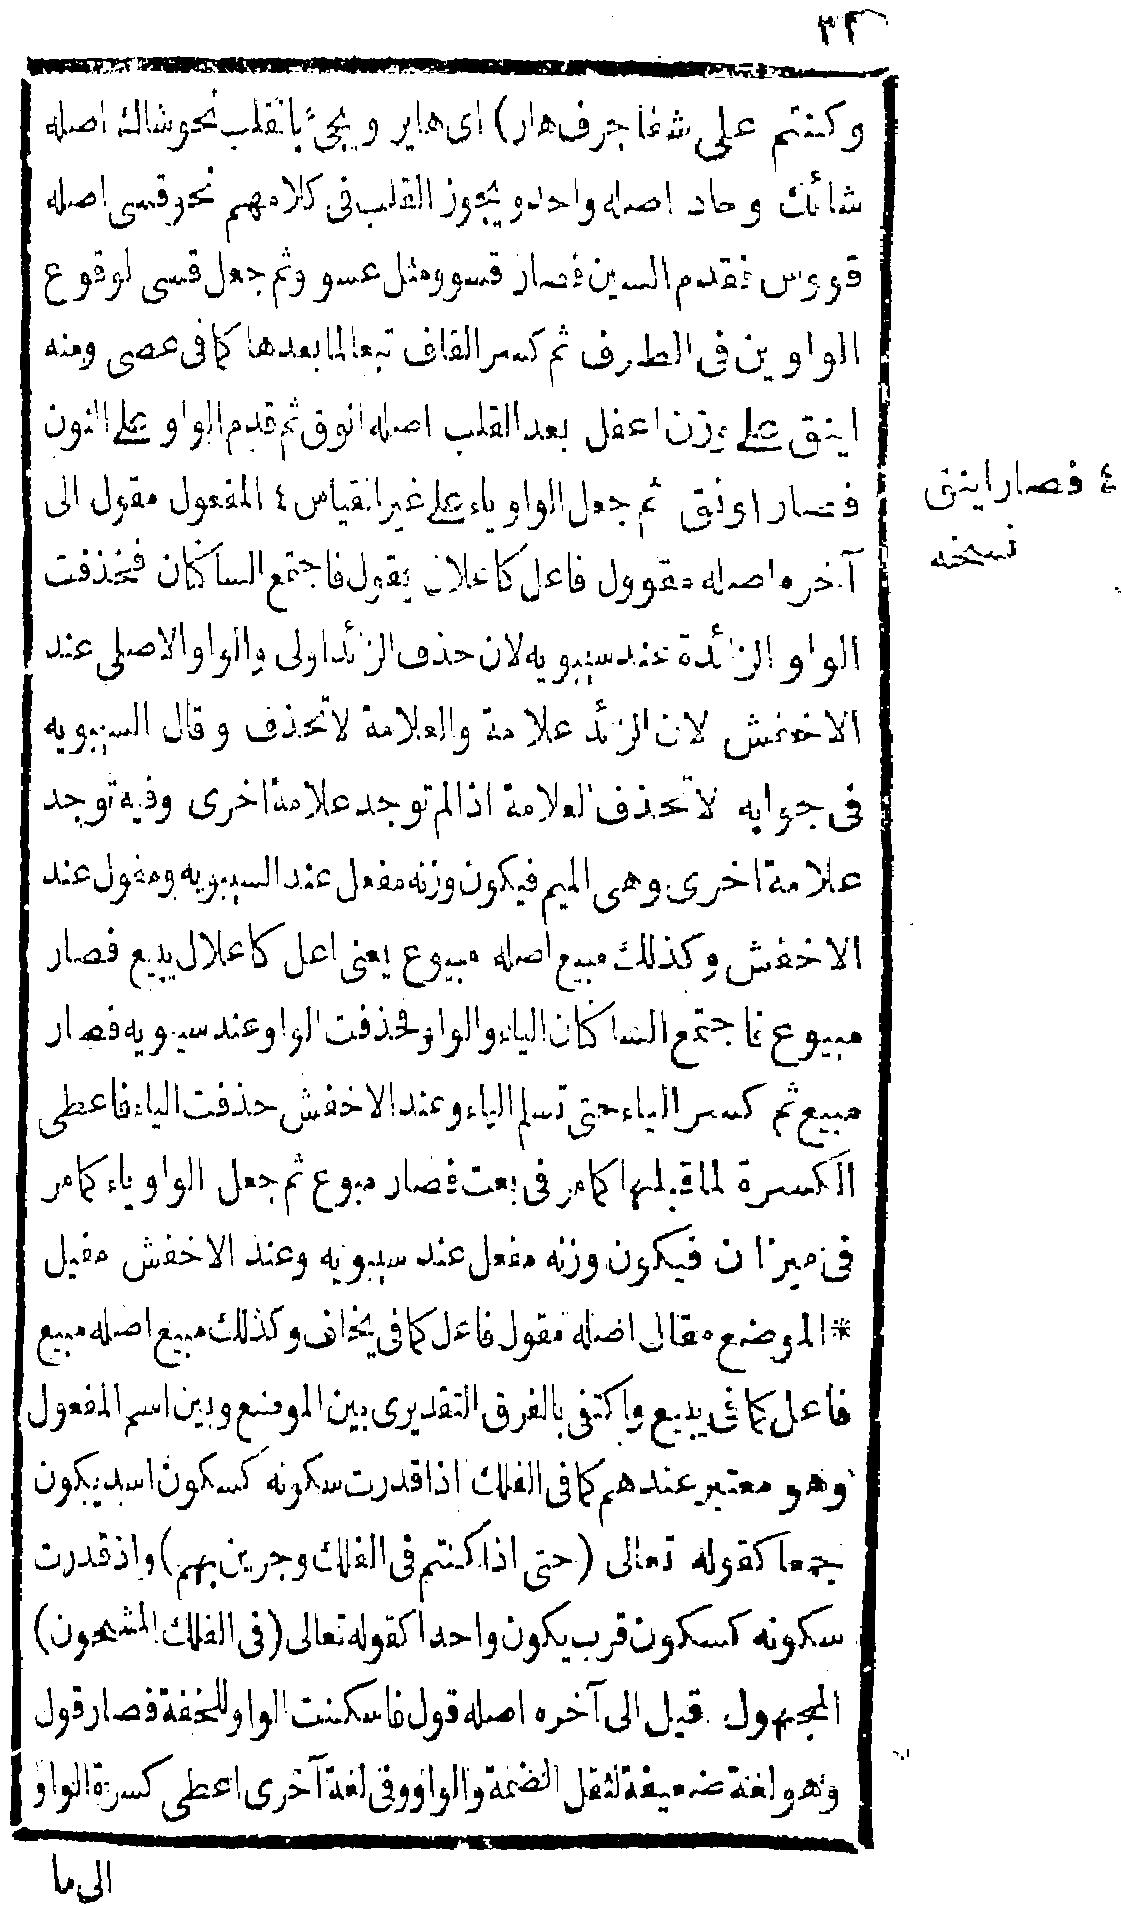 ٣٢
وكنتم على شفا جرف هار) اى هاير ويجئ بالقلب نحو شاك اصله
شائك وحاد اصله واحد ويجوز القلب فى كلامهم نحو قسى اصله
قووس فقدم السين فصار قسوو مثل عسوو ثم جعل قسى لوقوع
الواوين فى الطرف ثم كسر القاف تبعا لما بعدها كما فى عصى ومنه
اينق على وزن اعفل بعد القلب اصله انوق ثم قدم الواو على النون
فصار اونق ثم جعل الواو ياء على غير القياس ٤ المفعول مقول الى
آخره اصله مقوول فاعل كاعلال يقول فاجتمع الساكنان فحذفت
الواو الزائدة عند سيبويه لان حذف الزائد اولى والواو الاصلى عند
الاخفش لان الزائد علامة والعلامة لا تحذف وقال السيبويه
فى جوابه لا تحذف العلامة اذا لم توجد علامة اخرى وفيه توجد
علامة اخرى وهى الميم فيكون وزنه مفعل عند السيبويه ومفول عند
الاخفش وكذلك مبيع اصله مبيوع يعنى اعل كاعلال يبيع فصار
مبيوع فاجتمع الساكنان الياء والواو فحذفت الواو عند سيبويه فصار
مبيع ثم كسر الباء حتى تسلم الياء وعند الاخفش حذفت الياء فاعطى
الكسرة لما قبلها كما مر فى بعت فصار مبوع ثم جعل الواو ياء كما مر
فى ميزان فيكون وزنه مفعل عند سيبويه وعند الاخفش مفيل
* الموضع مقال اصله مقول فاعل كما فى يخاف وكذلك مبيع اصله مبيع
فاعل كما فى يبيع واكتفى بالفرق التقديرى بين الموضع وبين اسم المفعول
وهو معتبر عندهم كما فى الفلك اذا قدرت سكونه كسكون اسد يكون
جمعا كقوله تعالى (حتى اذا كنتم فى الفلك وجرين بهم) واذ قدرت
سكونه كسكون قرب يكون واحدا كقوله تعالى (فى الفلك المشحون)
المجهول قيل الى آخره اصله قول فاسكنت الواو للخفة فصار قول
وهو لغة ضعيفة لثقل الضمة والواو وفى لغة آخرى اعطى كسرة الواو
الى ما
٤ فصار اينق
نسخه